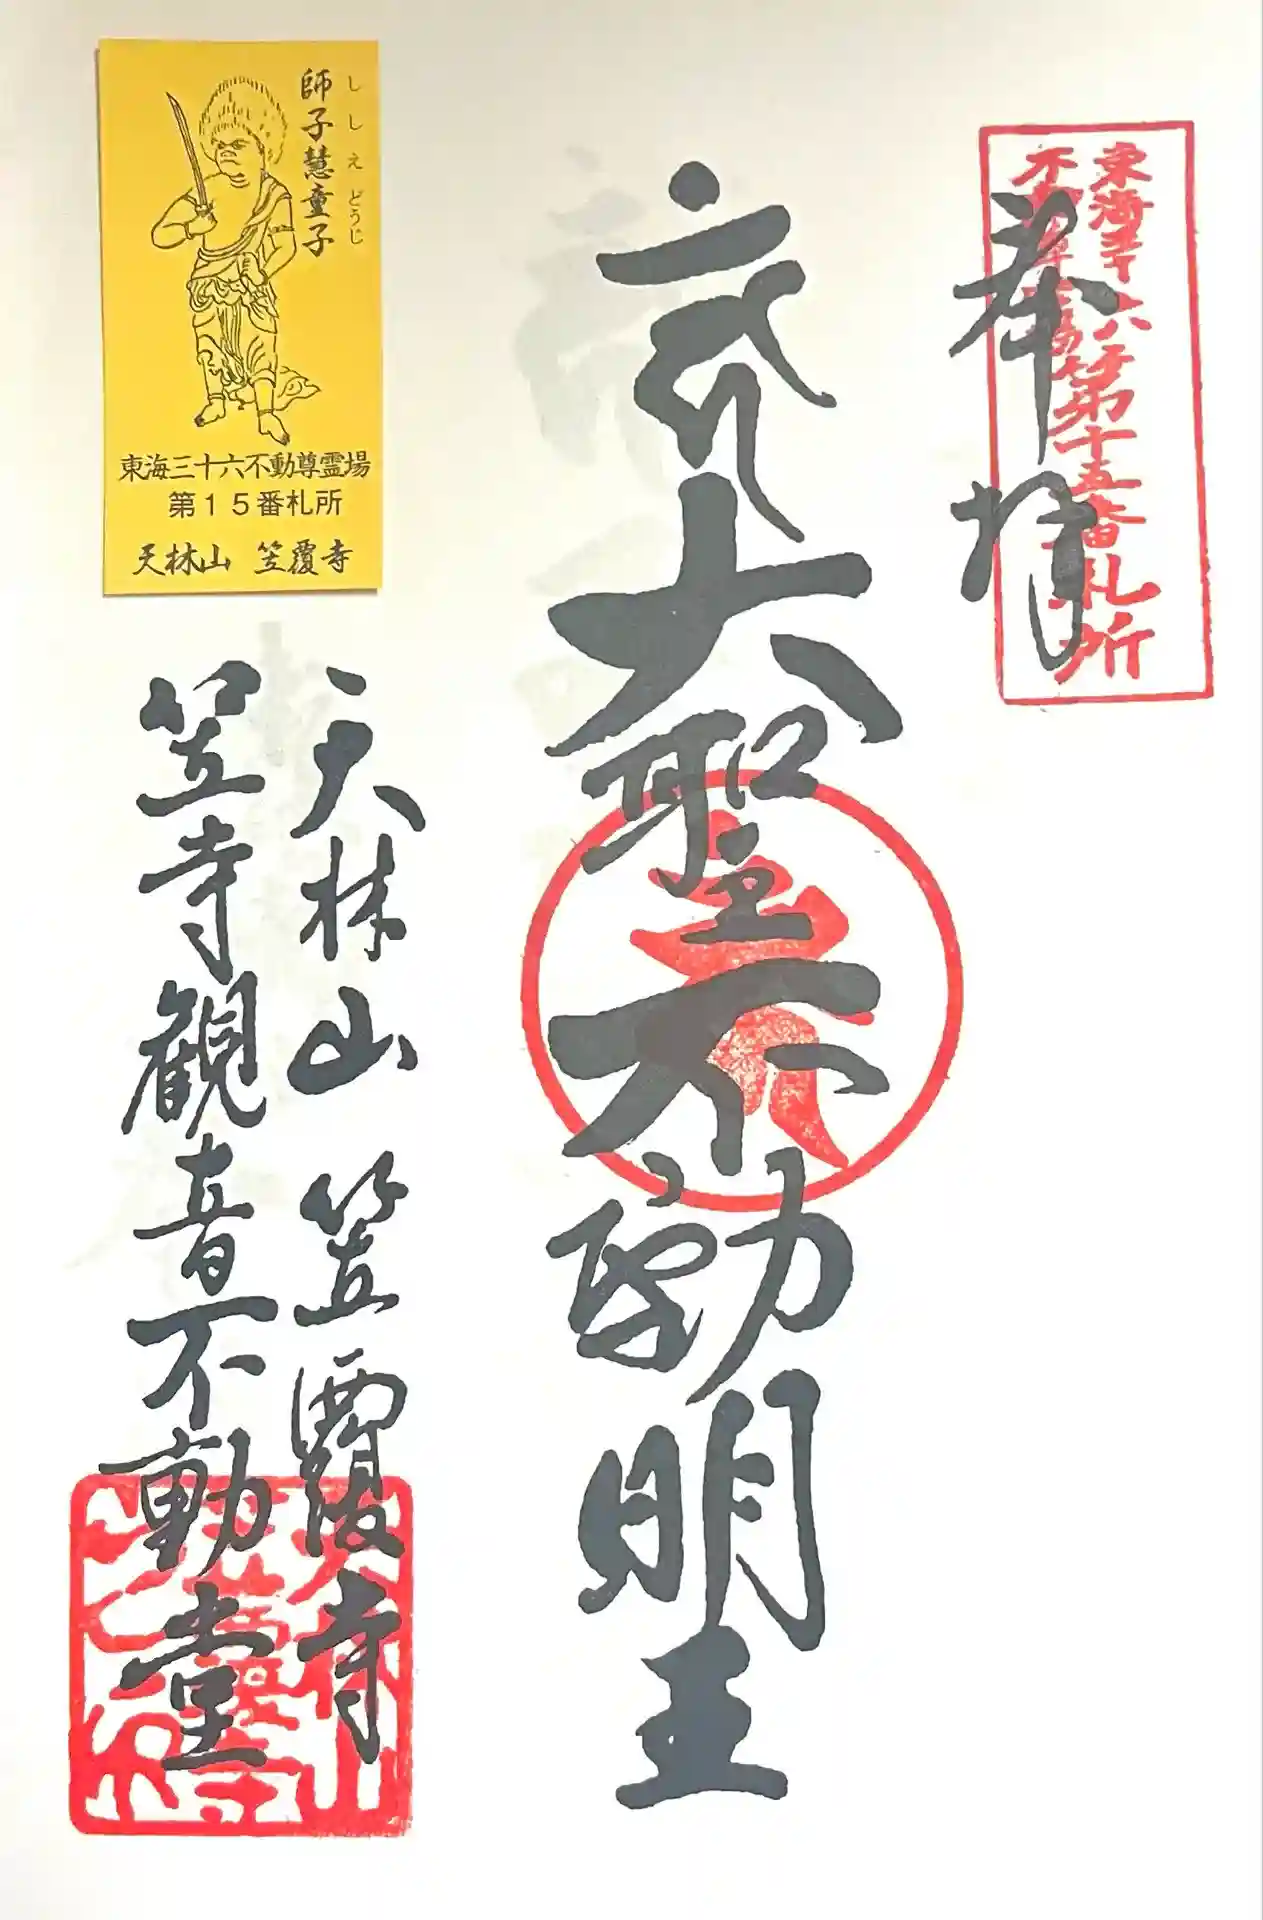 東海三十六
不動尊霊場
第十五番札所
奉拝
大聖不動明王
天林山 笠覆寺
笠寺観音不動堂
師子慧童子
ししえどうじ
東海三十六不動尊霊場
第15番札所
天林山 笠覆寺